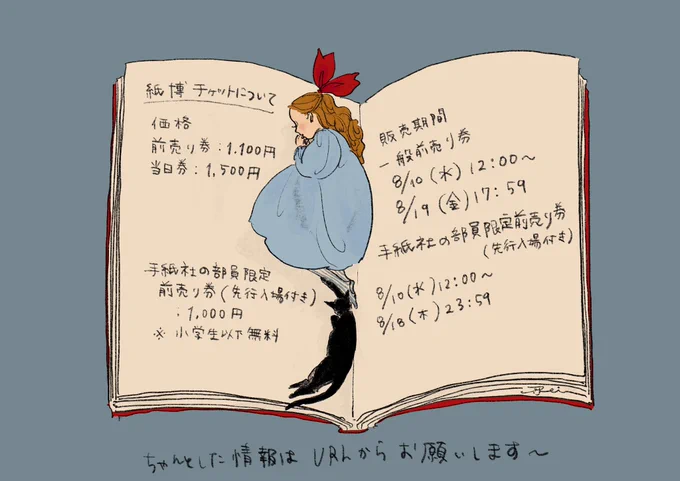 紙博チケットについて
価格
前売り券:1.100円
当日券:1,500円
手紙社の部員限定
前売り券(先行入場付き)
・1,000円
※小学生以下無料
販売期間
一般前売り券
8/10(水)12:00〜
8/19(金)17:59
手紙社の部員限定前売り券
(先行入場付き)
8/10(水)12:00〜
8/18(木)23:59
ちゃんとした情報はURLからお願いします〜